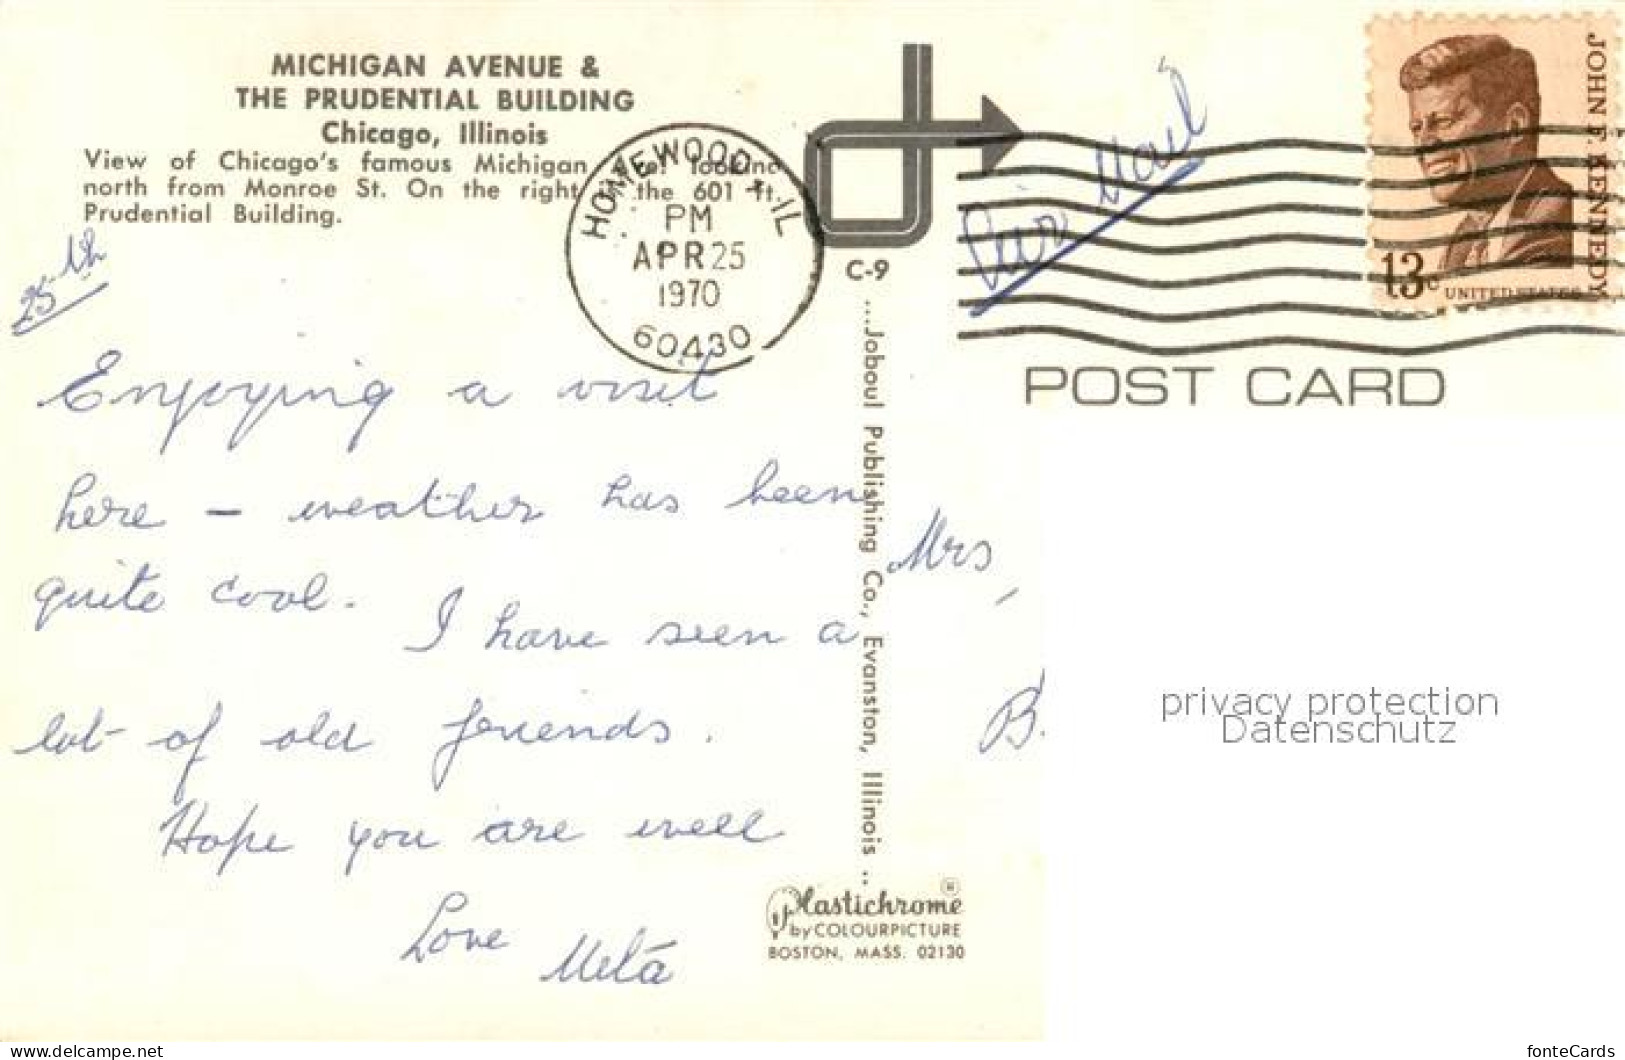 MICHIGAN AVENUE &
THE PRUDENTIAL BUILDING
Chicago, Illinois
View of Chicago's famous Michigan looking
north from Monroe St. On the right is the 601 ft.
Prudential Building.
HOMEWOOD, IL
PM
APR 25
1970
60430
C-9
Air Mail
JOHN F. KENNEDY
13c
UNITED STATES
POST CARD
25th
Enjoying a visit
here – weather has been
quite cool.
I have seen a
lot of old friends.
Hope you are well
Love
Meta
....Joboul Publishing Co., Evanston, Illinois ..
Mrs
B.
privacy protection
Datenschutz
Plastichrome ®
by COLOURPICTURE
BOSTON, MASS. 02130
https://www.delcampe.net
fonteCards